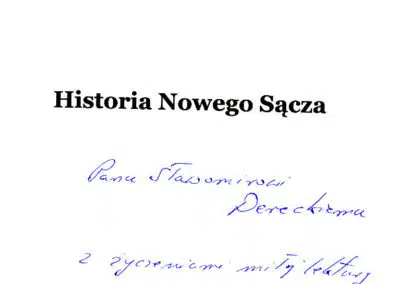 Historia Nowego Sącza
Panu Sławomirowi
Dereckiemu
z życzeniami miłej lektury